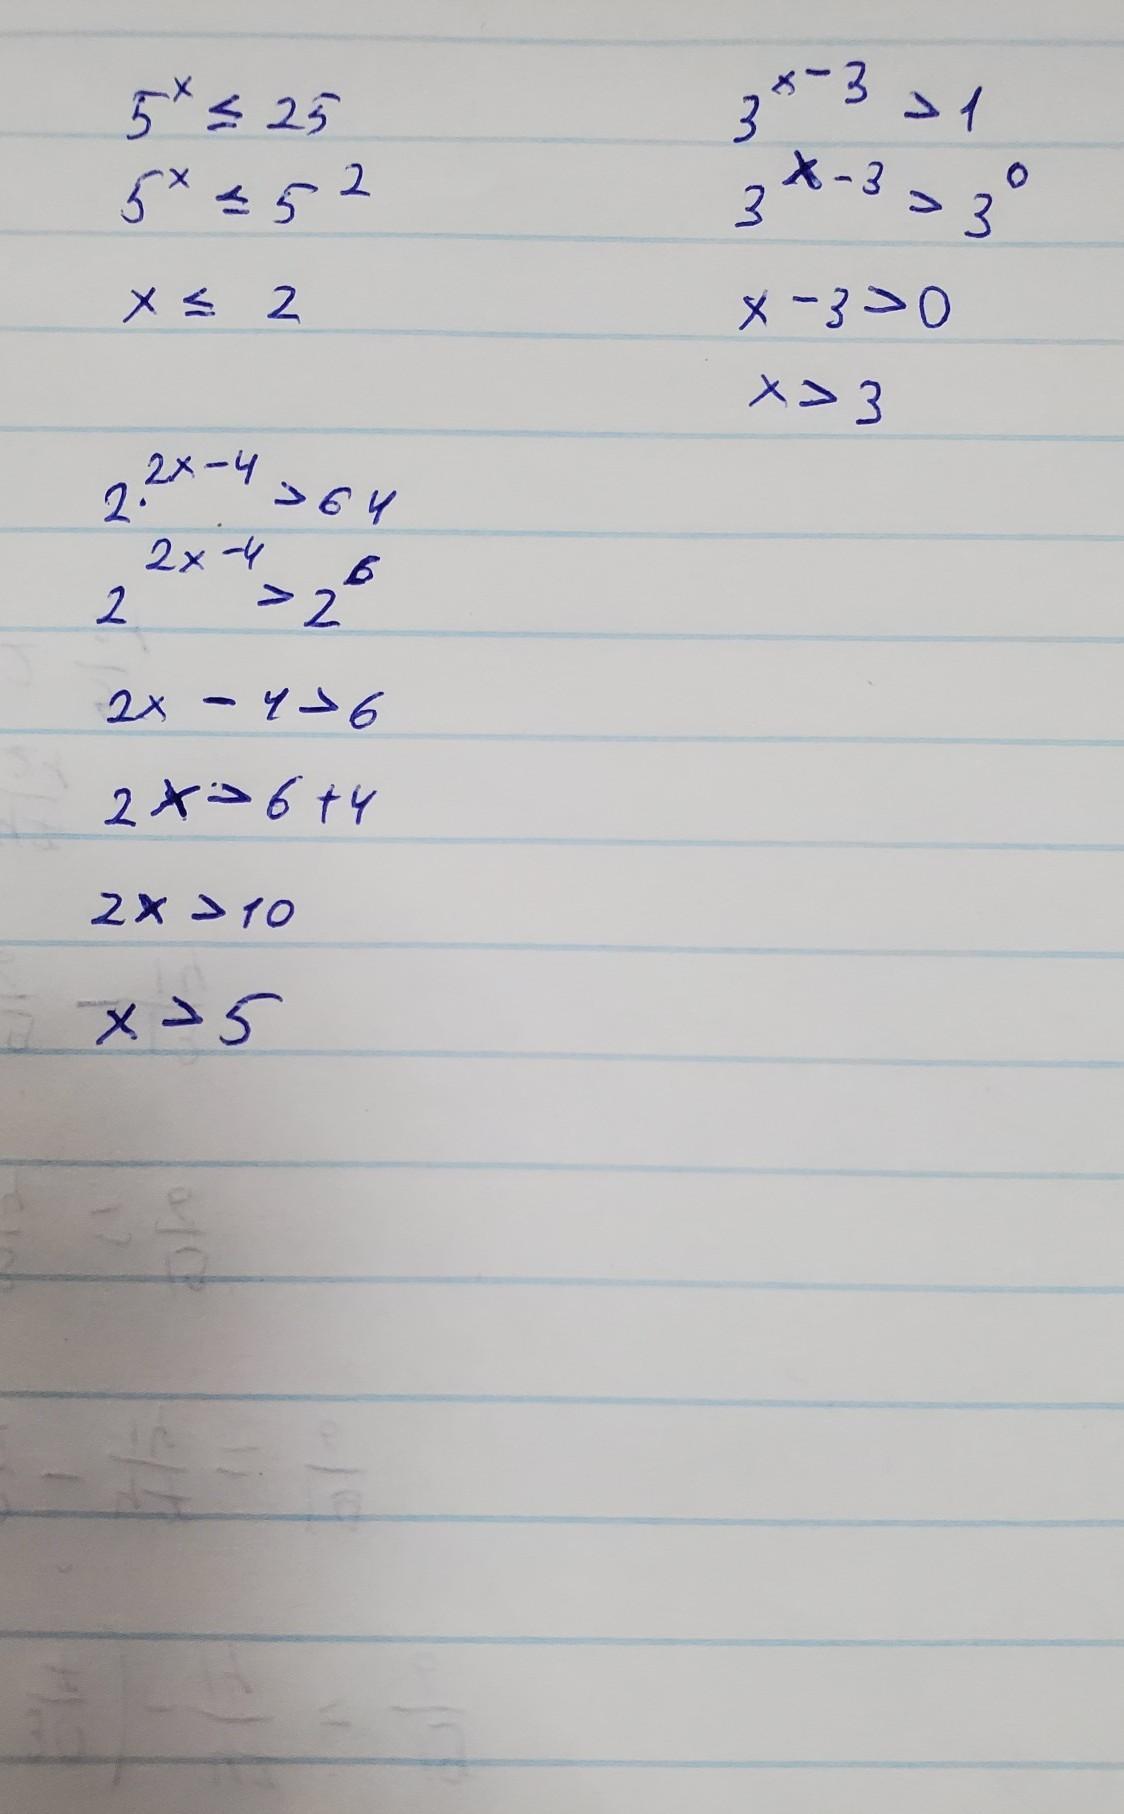 5^x ≤ 25
5^x ≤ 5^2
x ≤ 2
3^{x-3} > 1
3^{x-3} > 3^0
x - 3 > 0
x > 3
2^{2x-4} > 64
2^{2x-4} > 2^6
2x - 4 > 6
2x > 6 + 4
2x > 10
x > 5